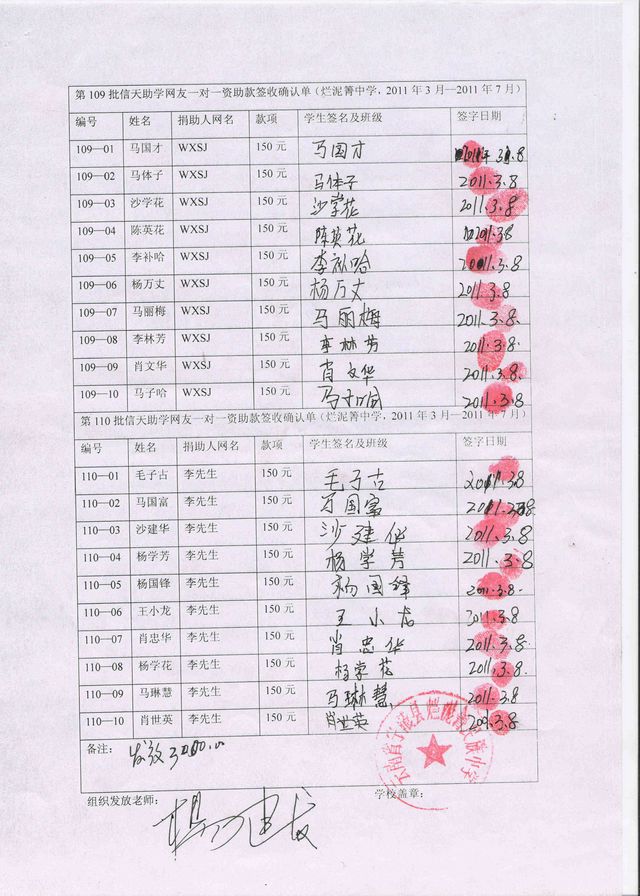 第109批信天助学网友一对一资助款签收确认单（烂泥箐中学，2011年3月—2011年7月）
编号 姓名 捐助人网名 款项 学生签名及班级 签字日期
109—01 马国才 WXSJ 150元 马国才 2011年3.8
109—02 马体子 WXSJ 150元 马体子 2011.3.8
109—03 沙学花 WXSJ 150元 沙学花 2011.3.8
109—04 陈英花 WXSJ 150元 陈英花 2011.3.8
109—05 李补哈 WXSJ 150元 李补哈 2011.3.8
109—06 杨万丈 WXSJ 150元 杨万丈 2011.3.8
109—07 马丽梅 WXSJ 150元 马丽梅 2011.3.8
109—08 李林芳 WXSJ 150元 李林芳 2011.3.8
109—09 肖文华 WXSJ 150元 肖文华 2011.3.8.
109—10 马子哈 WXSJ 150元 马子哈 2011.3.8
第110批信天助学网友一对一资助款签收确认单（烂泥箐中学，2011年3月—2011年7月）
编号 姓名 捐助人网名 款项 学生签名及班级 签字日期
110—01 毛子古 李先生 150元 毛子古 2011.3.8
110—02 马国富 李先生 150元 马国富 2011.3.8
110—03 沙建华 李先生 150元 沙建华 2011.3.8
110—04 杨学芳 李先生 150元 杨学芳 2011.3.8
110—05 杨国锋 李先生 150元 杨国锋 2011.3.8.
110—06 王小龙 李先生 150元 王小龙 2011.3.8
110—07 肖忠华 李先生 150元 肖忠华 2011.3.8
110—08 杨学花 李先生 150元 杨学花 2011.3.8
110—09 马琳慧 李先生 150元 马琳慧 2011.3.8
110—10 肖世英 李先生 150元 肖世英 2011.3.8
备注： 发放3000.00
云南省宁蒗县烂泥箐民族中学
组织发放老师： 学校盖章：